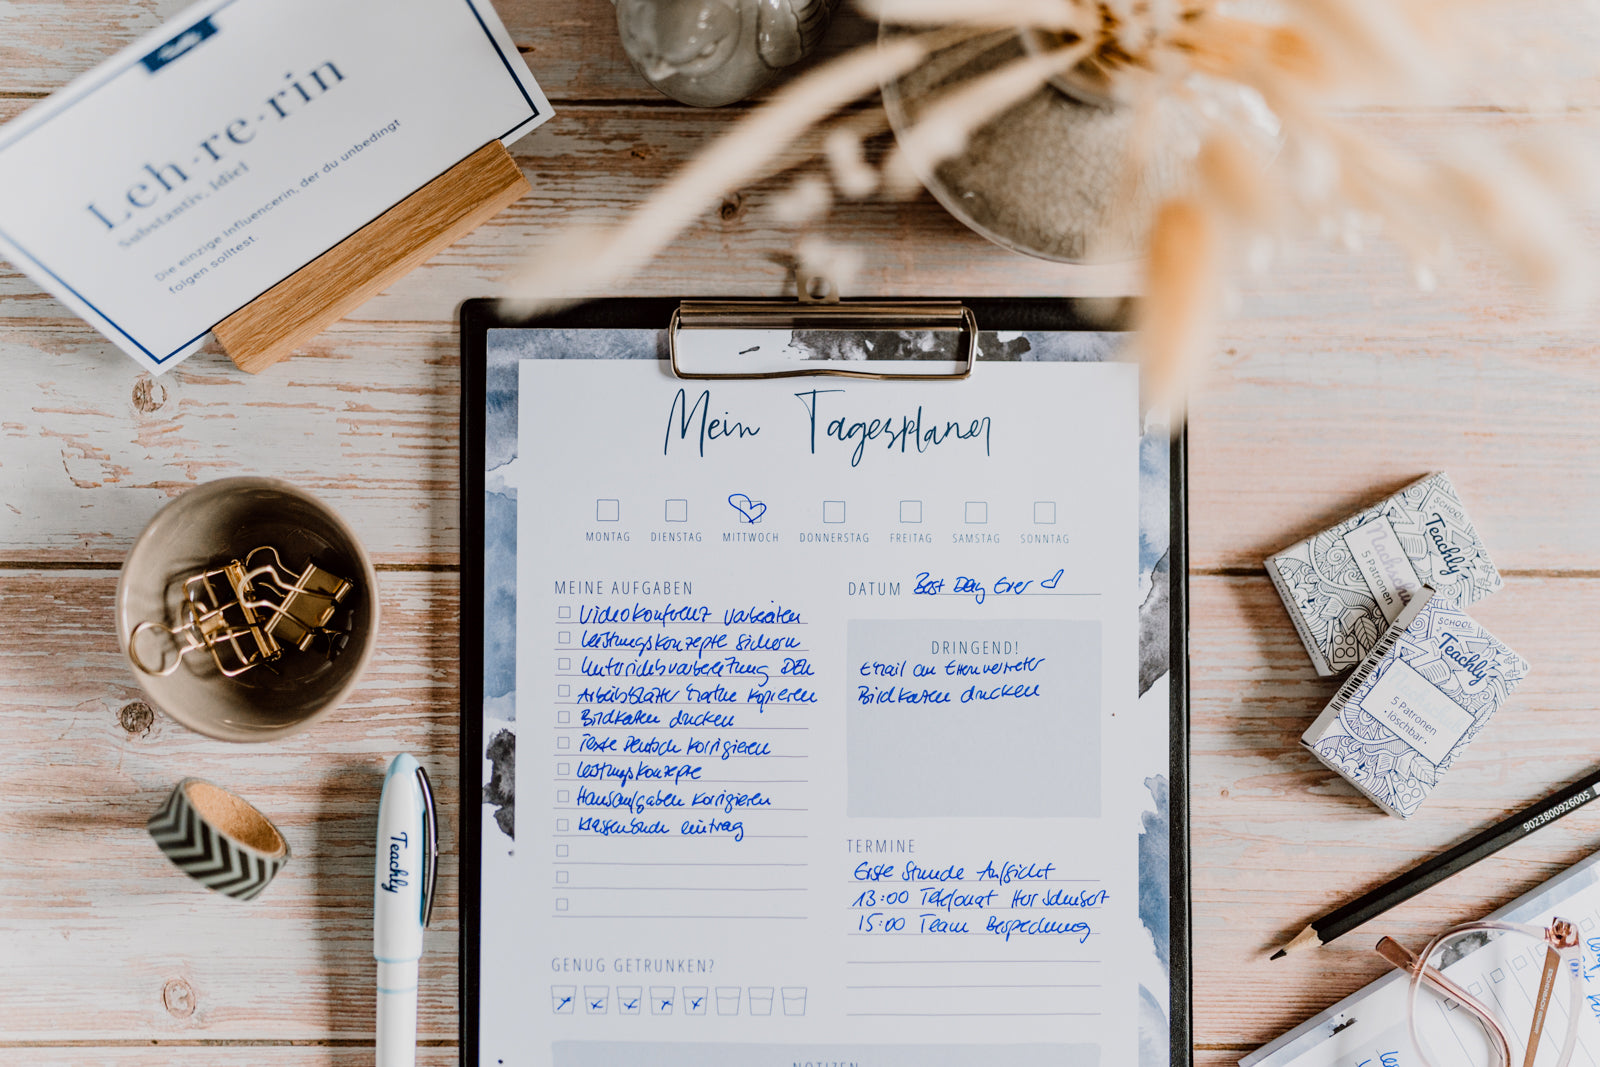 Leh·re·rin
Substantiv, [die]
Die einzige Influencerin, der du unbedingt
folgen solltest.
Mein Tagesplaner
MONTAG DIENSTAG MITTWOCH DONNERSTAG FREITAG SAMSTAG SONNTAG
MEINE AUFGABEN
Videokonferenz vorbereiten
Leistungskonzepte sichern
Unterrichtsvorbereitung
Arbeitsblätter Mathe kopieren
Bildkarten drucken
Texte Deutsch korrigieren
Leistungskonzepte
Hausaufgaben korrigieren
Klassenbuch eintrag
GENUG GETRUNKEN?
DATUM Best Day Ever
DRINGEND!
Email an Elternvertreter
Bildkarten drucken
TERMINE
Erste Stunde Aufsicht
13:00 Telefonat Herr
15:00 Team Besprechung
NOTIZEN
Teachly
SCHOOL
Teachly
5 Patronen
SCHOOL
Teachly
5 Patronen
· löschbar ·
9023800926005